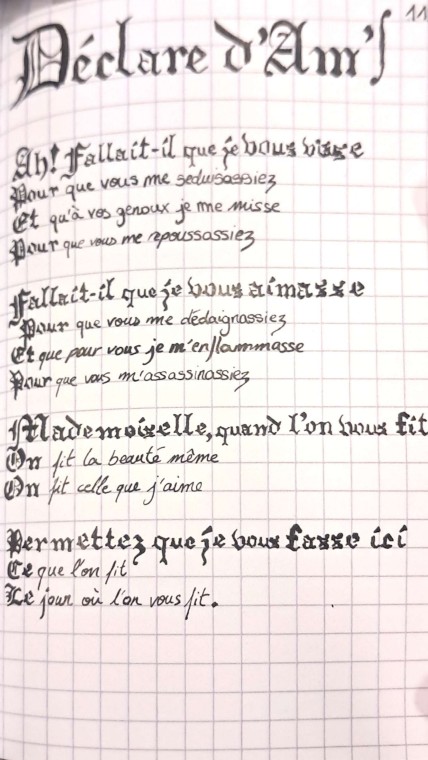 11
Déclare d'Am's
Ah! Fallait-il que je vous visse
Pour que vous me séduisassiez
Et qu'à vos genoux je me misse
Pour que vous me repoussassiez
Fallait-il que je vous aimasse
Pour que vous me dédaignassiez
Et que pour vous je m'enflammasse
Pour que vous m'assassinassiez
Mademoiselle, quand l'on vous fit
On fit la beauté même
On fit celle que j'aime
Permettez que je vous fasse ici
Ce que l'on fit
Le jour où l'on vous fit.